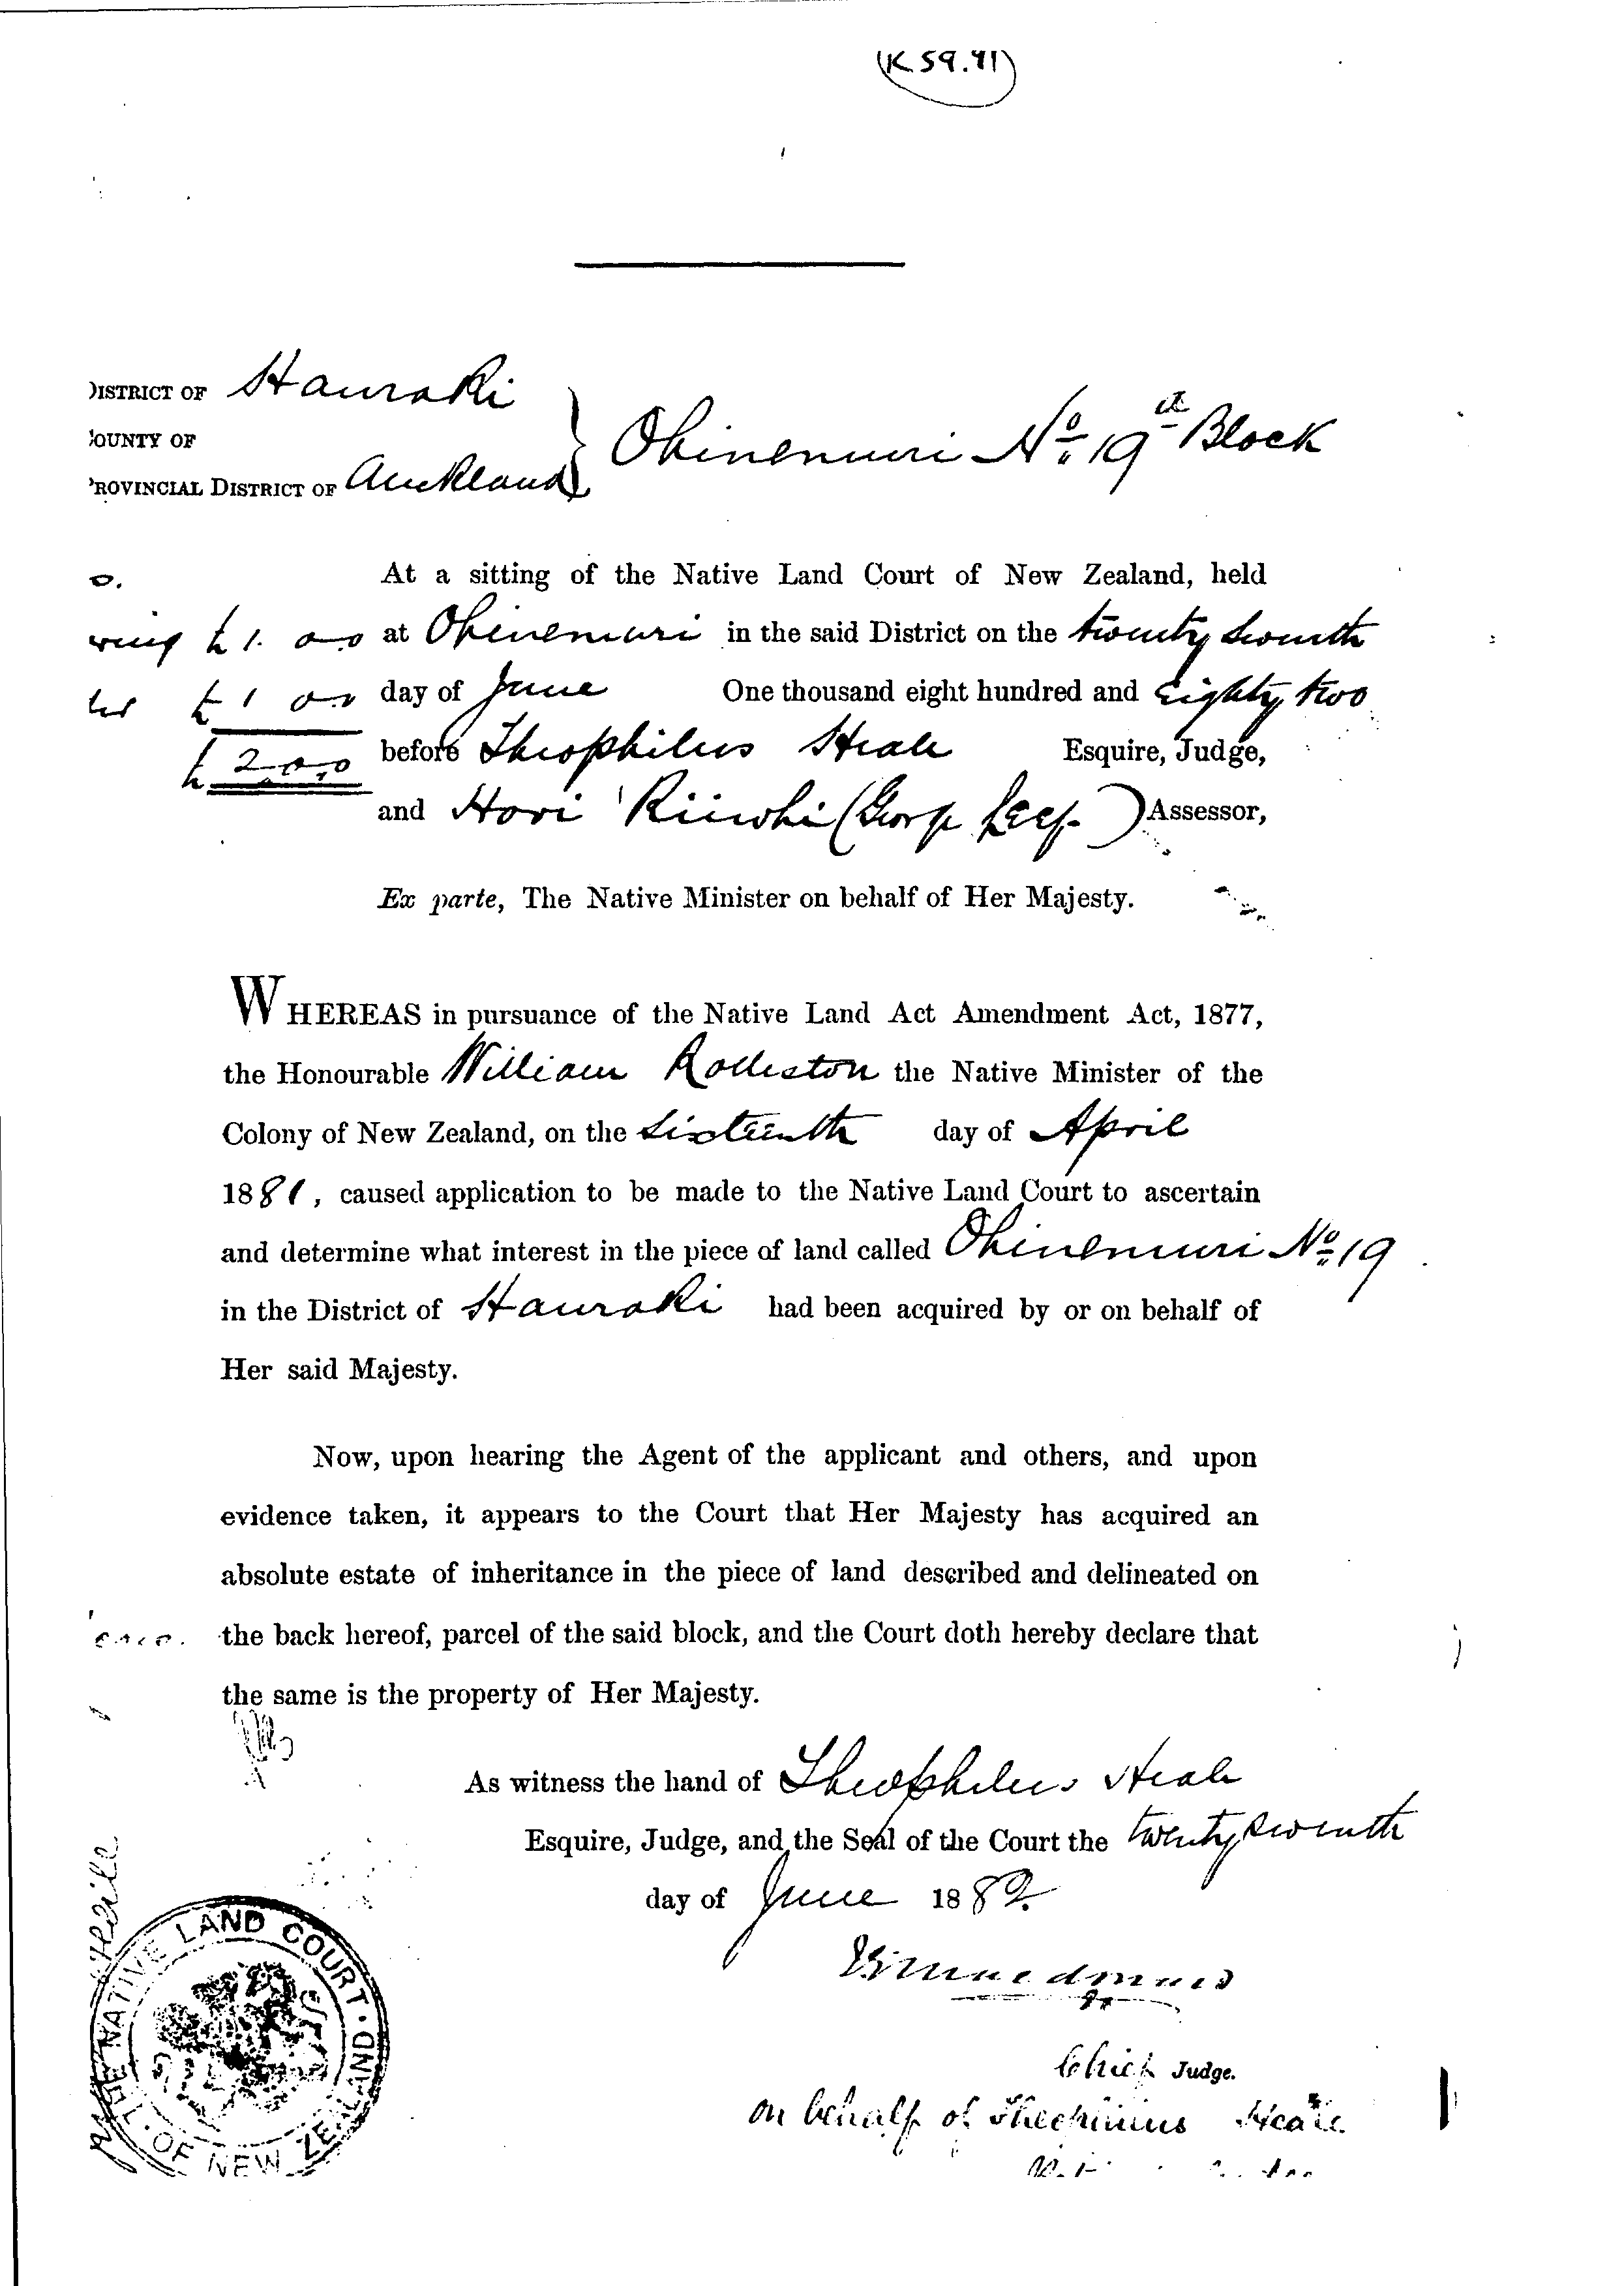 (K 59.41)
DISTRICT OF Hauraki
COUNTY OF
PROVINCIAL DISTRICT OF Auckland } Ohinemuri No. 19 Block
At a sitting of the Native Land Court of New Zealand, held
£1. 0.0 at Ohinemuri in the said District on the twenty seventh
£1 0.0 day of June One thousand eight hundred and eighty two
£2.0.0 before Theophilus Heale Esquire, Judge,
and Hori (George ) Assessor,
Ex parte, The Native Minister on behalf of Her Majesty.
WHEREAS in pursuance of the Native Land Act Amendment Act, 1877,
the Honourable William Rolleston the Native Minister of the
Colony of New Zealand, on the Sixteenth day of April
1881, caused application to be made to the Native Land Court to ascertain
and determine what interest in the piece of land called Ohinemuri No. 19
in the District of Hauraki had been acquired by or on behalf of
Her said Majesty.
Now, upon hearing the Agent of the applicant and others, and upon
evidence taken, it appears to the Court that Her Majesty has acquired an
absolute estate of inheritance in the piece of land described and delineated on
the back hereof, parcel of the said block, and the Court doth hereby declare that
the same is the property of Her Majesty.
As witness the hand of Theophilus Heale
Esquire, Judge, and the Seal of the Court the twenty seventh
day of June 1882
Chief Judge.
on behalf of Theophilus Heale
NATIVE LAND COURT · OF NEW ZEALAND